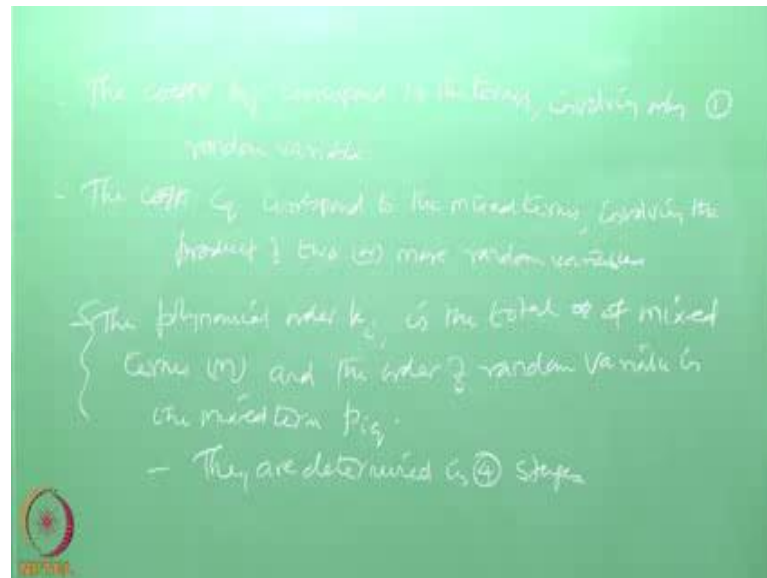 - The coeff bij correspond to the terms, involving only ①
random variable.
- The coeff Cq correspond to the mixed terms, involving the
product of two (or) more random variables
- The polynomial order ki, is the total # of mixed
terms (m) and the order of random variable in
the mixed term Piq.
- They are determined in ④ stages
NPTEL